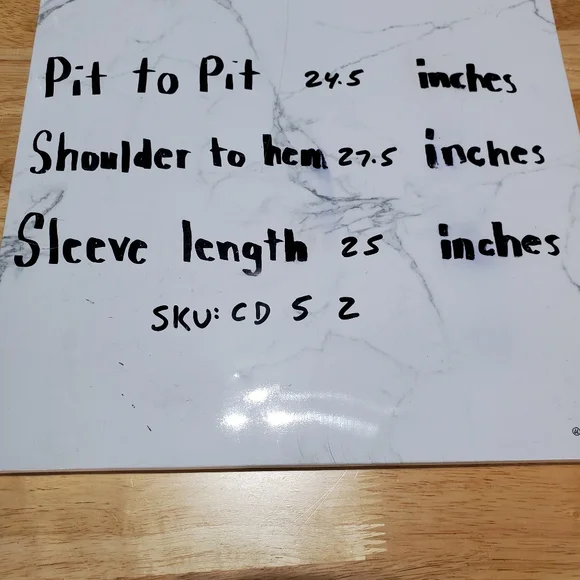 Pit to Pit 24.5 inches
Shoulder to hem 27.5 inches
Sleeve length 25 inches
SKU: CD 5 2